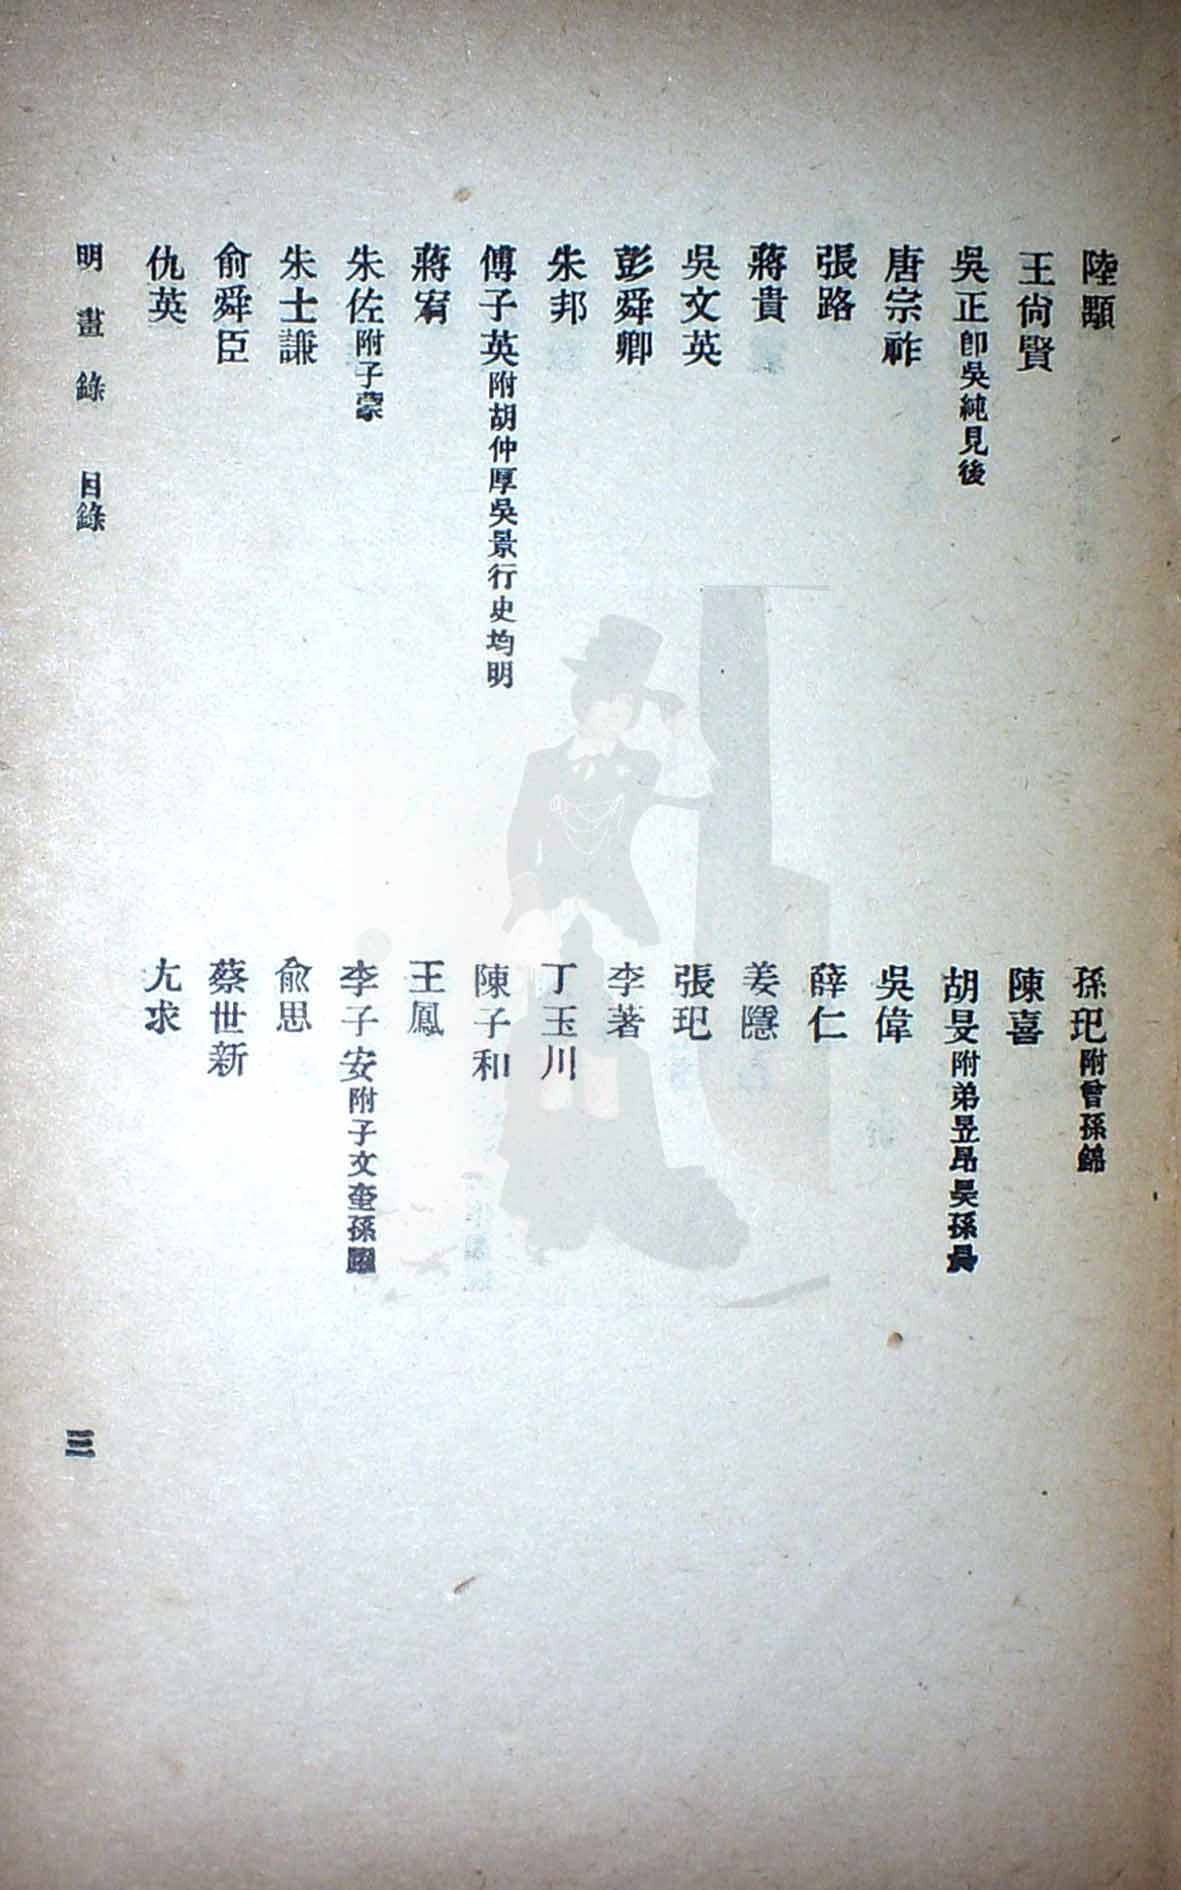 陸顒
孫玘附曾孫錦
王尙賢
陳喜
吳正卽吳純見後
胡旻附弟昱昂昊孫
唐宗祚
吳偉
張路
薛仁
蔣貴
姜隱
吳文英
張玘
彭舜卿
李著
朱邦
丁玉川
傅子英附胡仲厚吳景行史均明
陳子和
蔣
王鳳
朱佐附子蒙
李子安附子文奎孫
朱士謙
俞思
俞舜臣
蔡世新
仇英
尤求
明畫錄 目錄
三